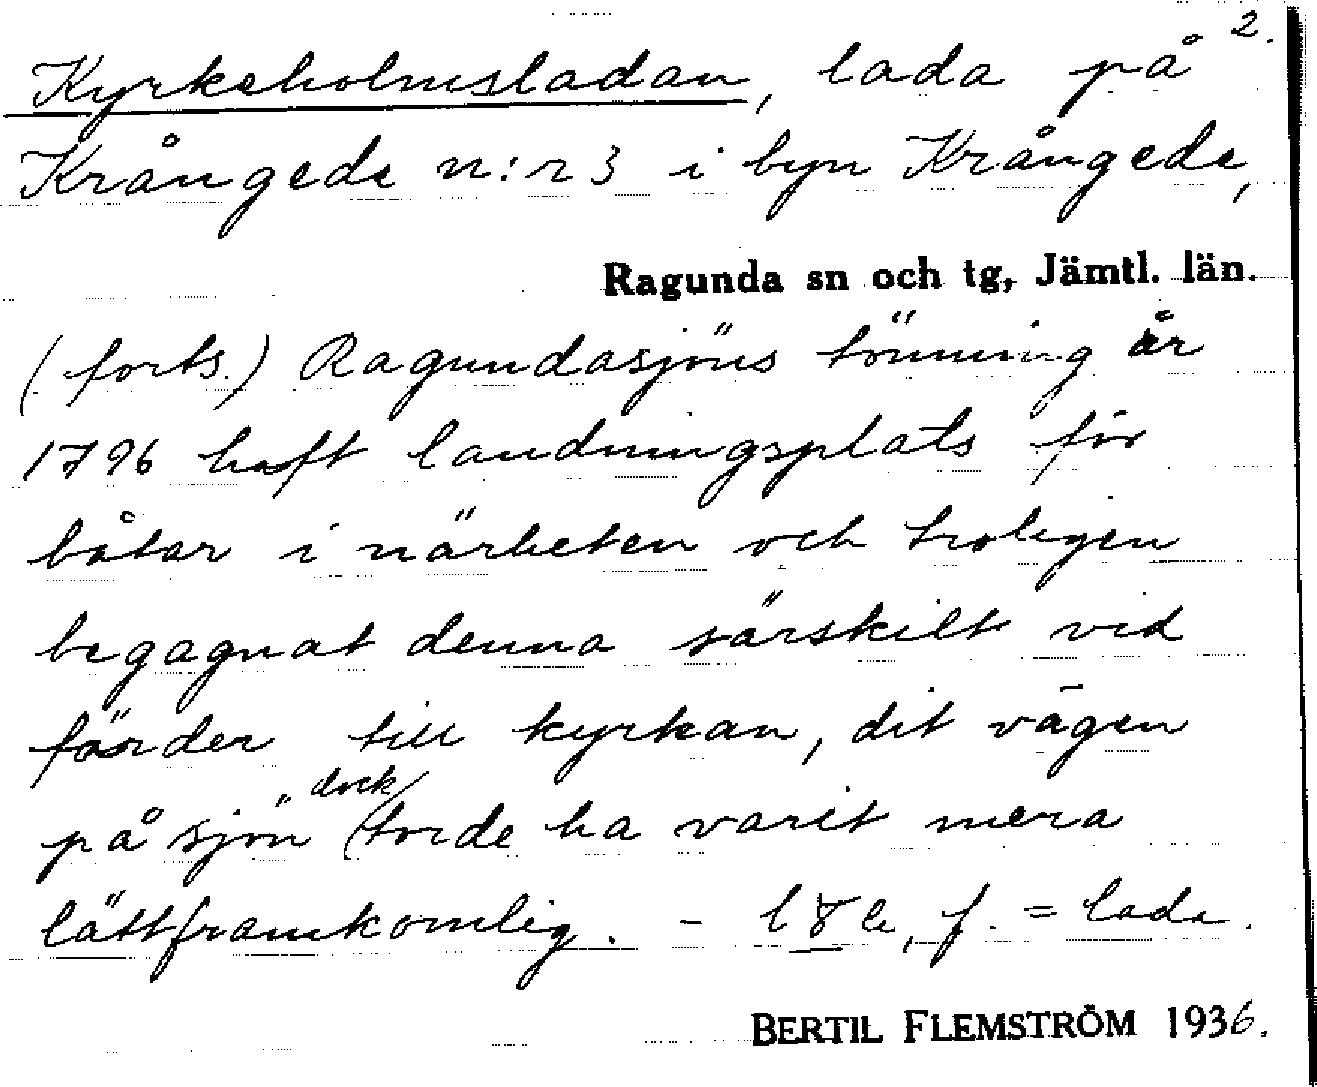 2.
Kyrkeholmsladan, lada på
Krångede n:r 3 i byn Krångede,
Ragunda sn och tg, Jämtl. län.
(forts.) Ragundasjöns tömning år
1796 haft landningsplats för
båtar i närheten och troligen
begagnat denna särskilt vid
färder till kyrkan, dit vägen
dock
på sjön torde ha varit mera
lättframkomlig. - f. = lada.
BERTIL FLEMSTRÖM 1936.